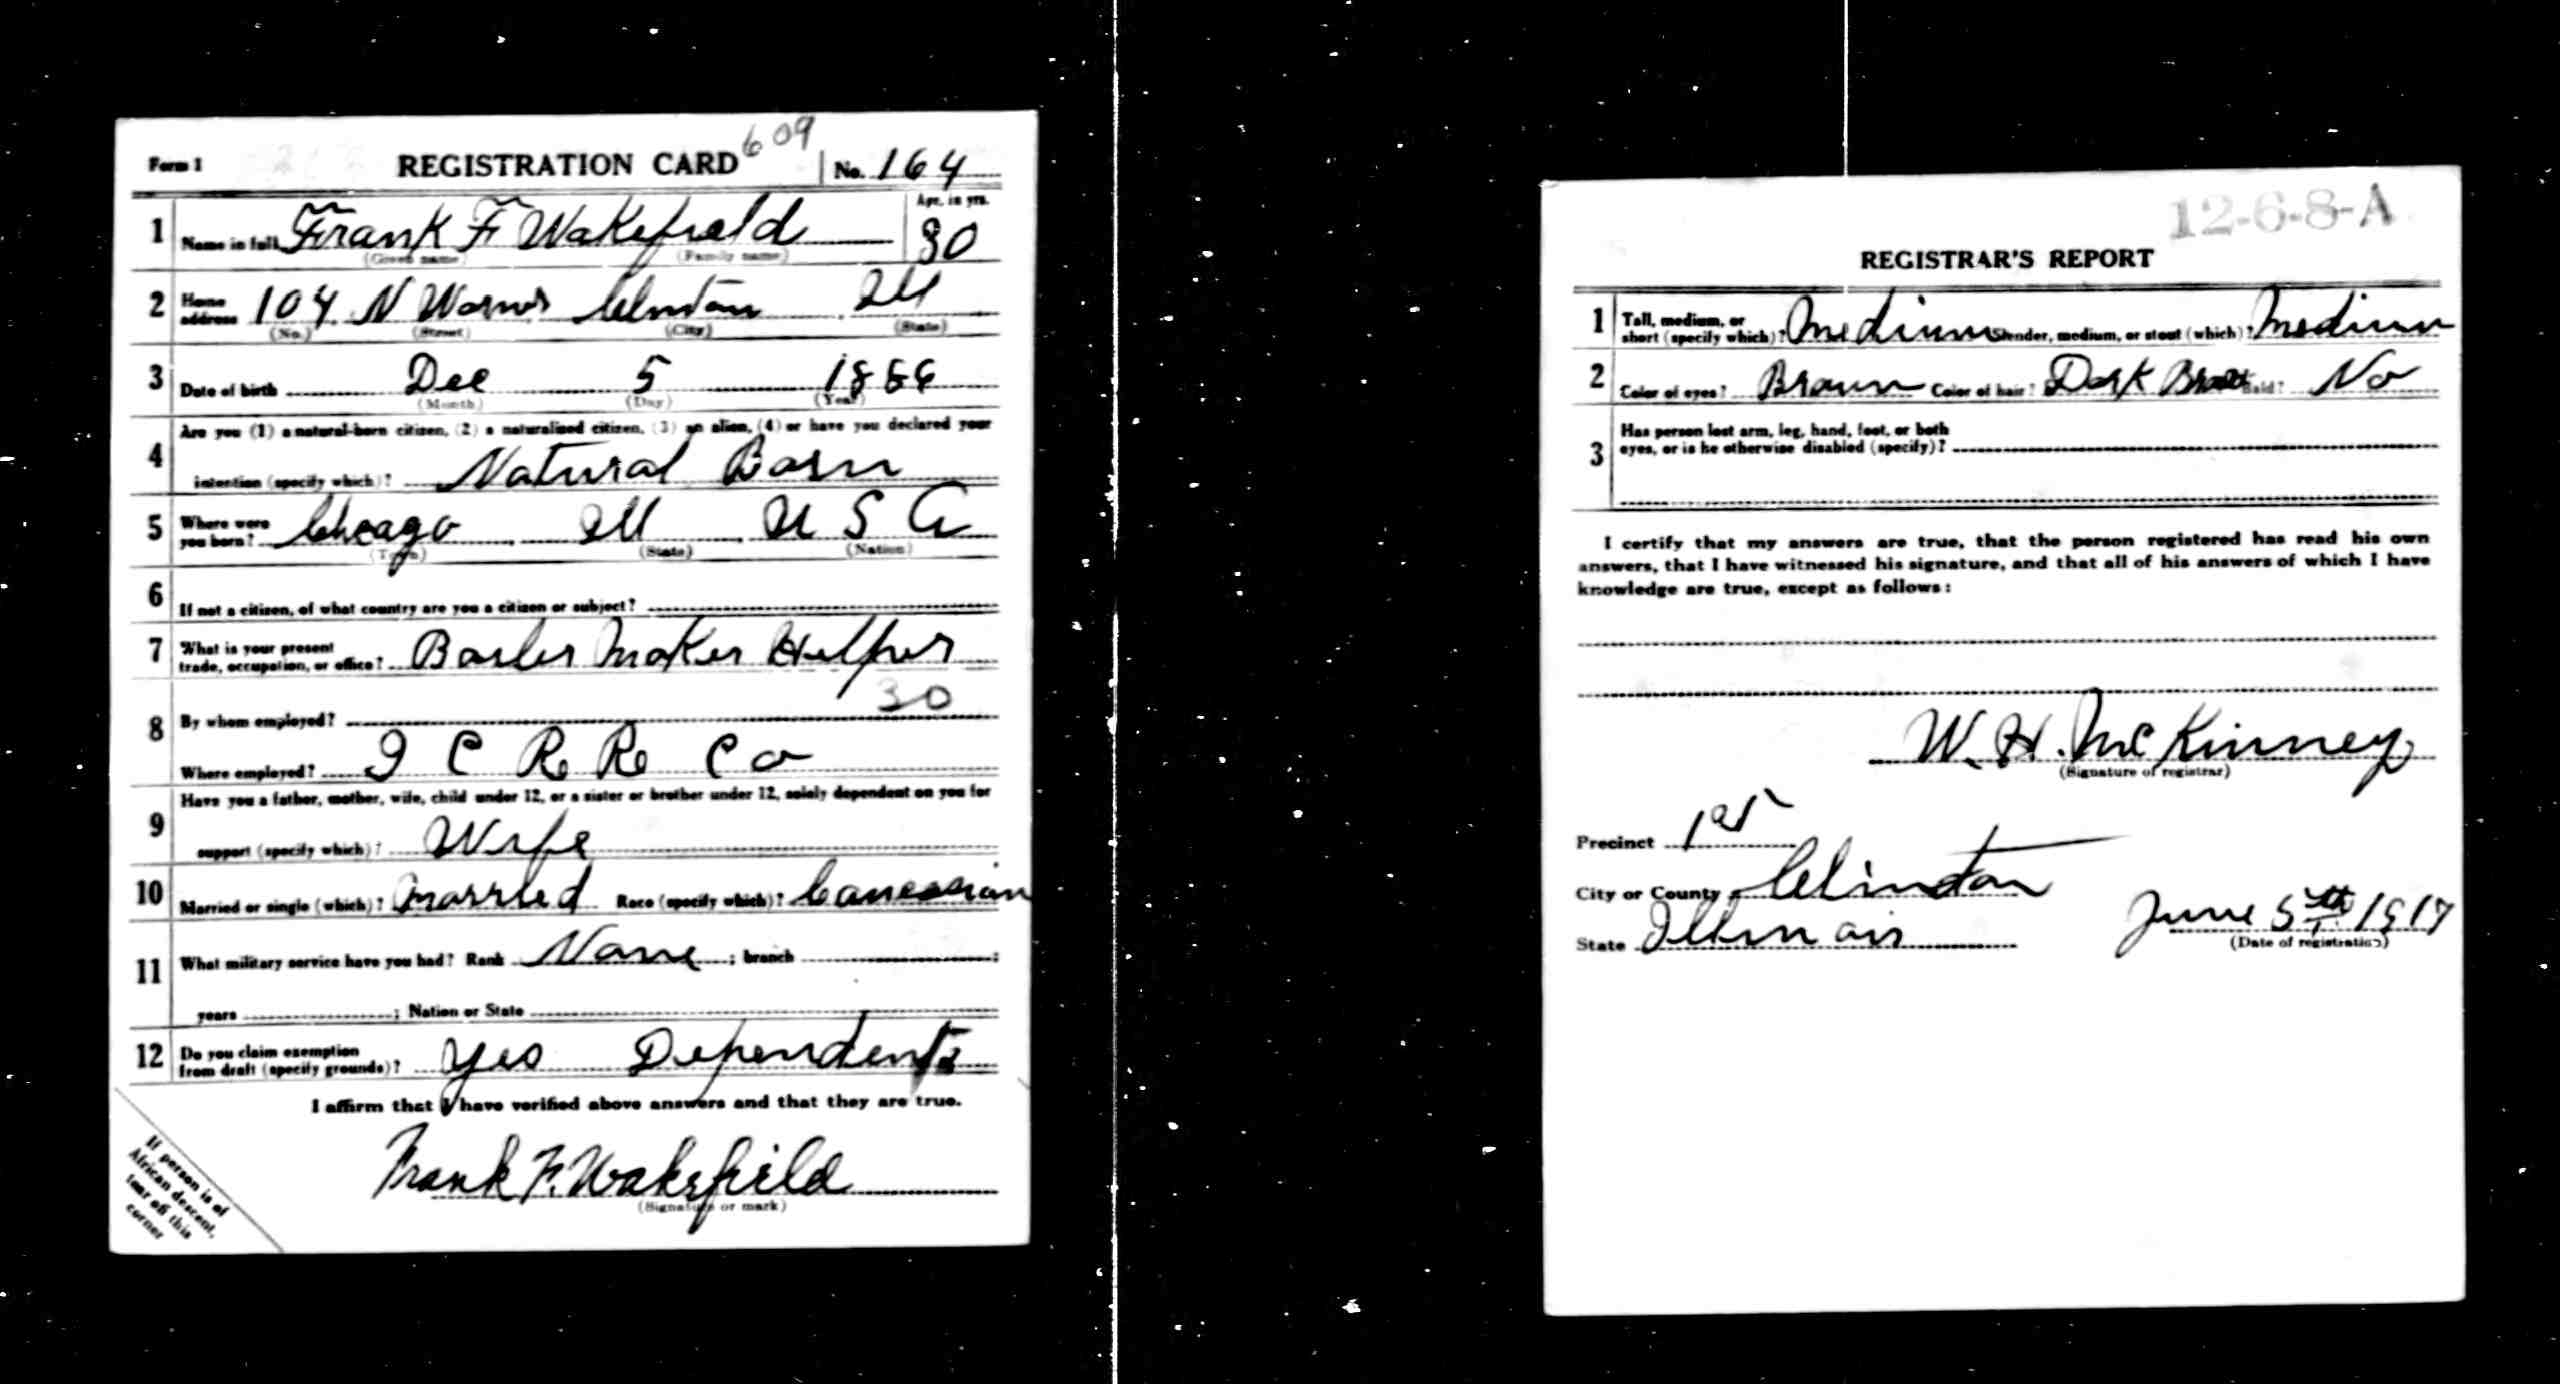 609
Form 1 REGISTRATION CARD No. 164
1 Name in full Frank F Wakefield Age, in yrs. 30
(Given name) (Family name)
2 Home address 104 N Warner Clinton Ill
(No.) (Street) (City) (State)
3 Date of birth Dec 5 1886
(Month) (Day) (Year)
Are you (1) a natural-born citizen, (2) a naturalized citizen, (3) an alien, (4) or have you declared your
4 intention (specify which)? Natural Born
5 Where were you born? Chicago Ill U S A
(Town) (State) (Nation)
6 If not a citizen, of what country are you a citizen or subject?
7 What is your present trade, occupation, or office? Boiler Maker Helper
30
8 By whom employed?
Where employed? I C R R Co
Have you a father, mother, wife, child under 12, or a sister or brother under 12, solely dependent on you for
9 support (specify which)? Wife
10 Married or single (which)? Married Race (specify which)? Caucasian
11 What military service have you had? Rank None ; branch ;
years ; Nation or State
12 Do you claim exemption from draft (specify grounds)? Yes Dependents
I affirm that I have verified above answers and that they are true.
Frank F. Wakefield
(Signature or mark)
If person is of
African descent,
tear off this
corner
12-6-8-A
REGISTRAR'S REPORT
1 Tall, medium, or short (specify which)? Medium Slender, medium, or stout (which)? Medium
2 Color of eyes? Brown Color of hair? Dark Brown Bald? No
3 Has person lost arm, leg, hand, foot, or both
eyes, or is he otherwise disabled (specify)?
I certify that my answers are true, that the person registered has read his own
answers, that I have witnessed his signature, and that all of his answers of which I have
knowledge are true, except as follows:
W. H. McKinney
(Signature of registrar)
Precinct 1st
City or County Clinton
State Illinois June 5th 1917
(Date of registration)